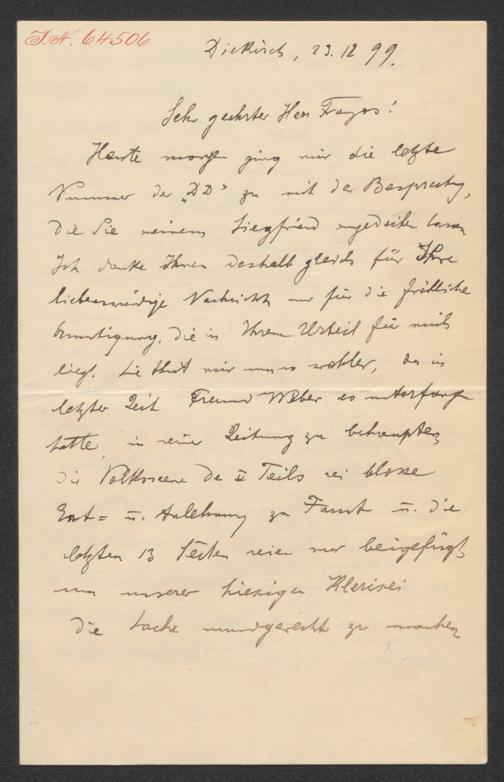 J.N. 64506
Diekirch, 23.12 99.
Sehr geehrter Herr Franzos!
Heute morg ging mir die letzte
Nummer der „DD" zu mit der Besprechg,
die Sie meinem Siegfried angedeihen lassen
Ich danke Ihnen deshalb gleich für Ihre
liebenswürdige Nachricht und für die fröhliche
Ermutigung, die in Ihrem Urteil für mich
liegt. Sie thut mir umso wohler, da in
letzter Zeit Freund Weber es unterfangen
hatte, in seiner Zeitung zu behaupten,
die Volksscene des II Teils sei blosse
Ent= u. Anlehnung zu Faust u. die
letzten 13 Seiten seien nur beigefügt,
um unserer hiesigen Klerisei
die Sache mundgerecht zu machen,